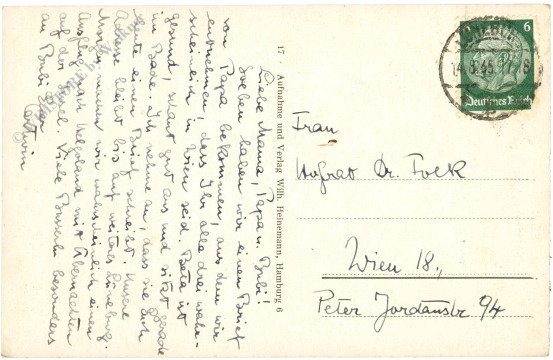 Liebe Mama, Papa u. Bubi!
Soeben haben wir einen Brief
von Papa bekommen, aus dem wir
entnehmen, dass Ihr alle drei wahr-
scheinlich in Wien seid. Bela ist
gesund, schaut gut aus und sitzt gerade
im Bade. Ich nehme an, dass sie Euch
heute einen Brief schreibt. Unsere
Adresse bleibt bis auf weiteres Lüneburg.
Morgen machen wir wahrscheinlich einen
Ausflug nach Helgoland mit Übernachten
auf der Insel. Viele Busserln besonders
an Bubi Euer
17 · Aufnahme und Verlag Wilh. Heinemann, Hamburg 6
6
Deutsches Reich
Frau
Hofrat Dr. Folk
Wien 18.,
Peter Jordanstr 94